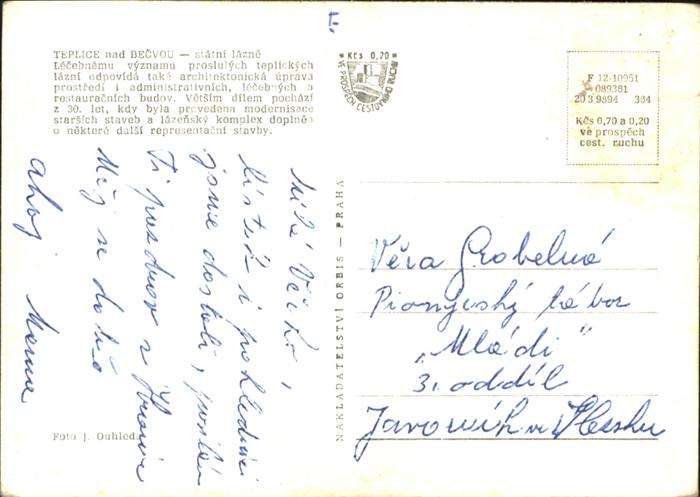 F.
TEPLICE nad BEČVOU — státní lázně
Léčebnému významu proslulých teplických
lázní odpovídá také architektonická úprava
prostředí i administrativních, léčebných a
restauračních budov. Větším dílem pochází
z 30. let, kdy byla provedena modernisace
starších staveb a lázeňský komplex doplněn
o některé další representační stavby.
Milá Věrko,
lísteček i pohlednici
jsme dostali, posílám
Ti pozdrav z
Měj se dobře
ahoj
Foto J. Ouhleda
NAKLADATELSTVÍ ORBIS — PRAHA
Kčs 0,70
VE PROSPĚCH CESTOVNÍHO RUCHU
F 12-10951
089381
20 3 9894 364
Kčs 0,70 a 0,20
ve prospěch
cest. ruchu
Věra Grobelná
Pionýrský tábor
„Mládí"
3. oddíl
Javorník ve Slezsku